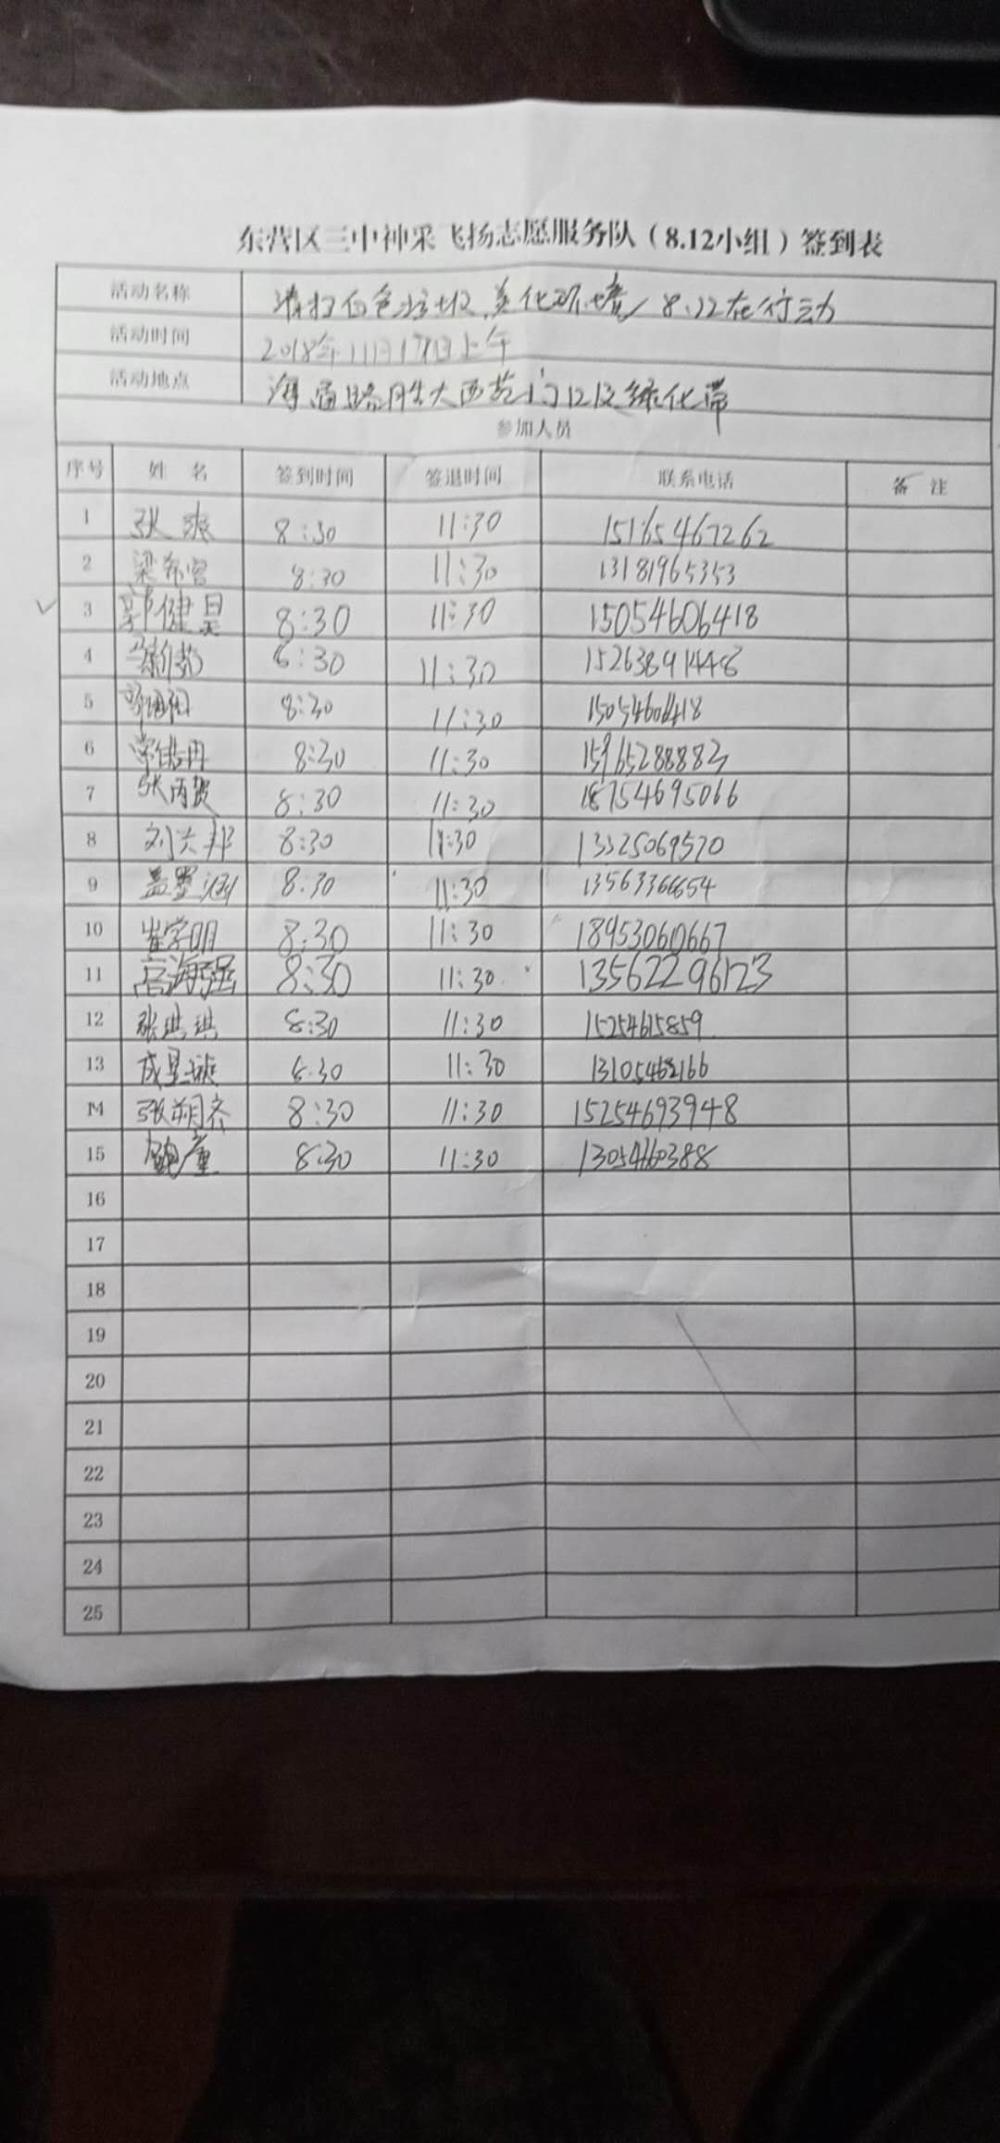 东营区三中神采飞扬志愿服务队（8.12小组）签到表
活动名称 清扫白色垃圾,美化环境,8.12在行动
活动时间 2018年11月17日上午
活动地点 海通路胜大西苑门口及绿化带
参加人员
序号 姓 名 签到时间 签退时间 联系电话 备 注
1 张爽 8:30 11:30 15165467262
2 梁希宫 8:30 11:30 13181965353
3 郭健昊 8:30 11:30 15054606418
4 8:30 11:30 15263891448
5 8:30 11:30 15054606418
6 常佳冉 8:30 11:30 15965288883
7 张丙贺 8:30 11:30 18754695066
8 刘兴邦 8:30 11:30 13325069520
9 盖墨涵 8:30 11:30 13563366654
10 崔学明 8:30 11:30 18953060667
11 高海强 8:30 11:30 13562296123
12 张琪琪 8:30 11:30 15254615859
13 成星璇 8:30 11:30 13105462166
14 张朔齐 8:30 11:30 15254693948
15 8:30 11:30 13054660388
16
17
18
19
20
21
22
23
24
25